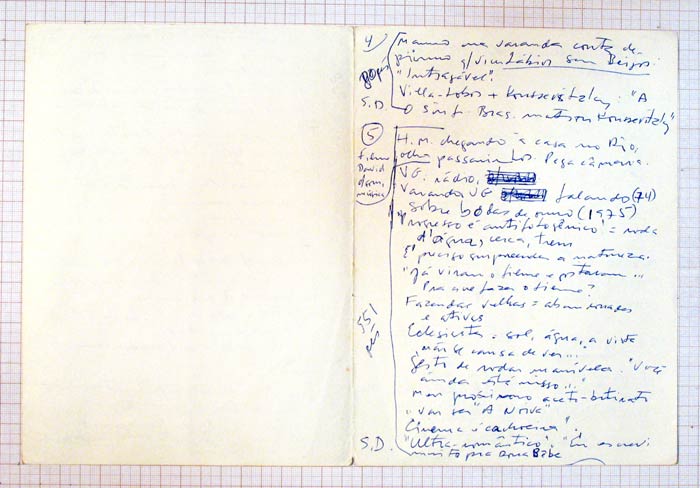 4
na varanda conta de
p/ vir Lábios Sem Beijos.
"Intragável".
80 pés
Villa-Lobos + Koussevitzky: "A
S.D.
O Sinf. Bras. matou Koussevitzky"
5
H.M. chegando à casa no Rio,
filme
David
música
olha passarinhos. Pega câmara.
VG. rádio,
Varanda VG falando (74)
sobre bodas de ouro (1975)
Progresso é antifotogênico = roda
d'água, cerca, trem
É preciso surpreender a natureza.
"Já viram o filme e gostaram...
Pra que fazer o filme?
Fazendas velhas = abandonadas
e ativas
551
pés
Eclesiastes = sol, água, a vista
não se cansa de ver...
gesto de rodar manivela. "Você
ainda está nisso..."
Meu próximo
vai ser "A Noiva"
Cinema é cachoeira".
S.D.
"Ultra-romântico". "Eu escrevi
muito pra Dona Bêbe